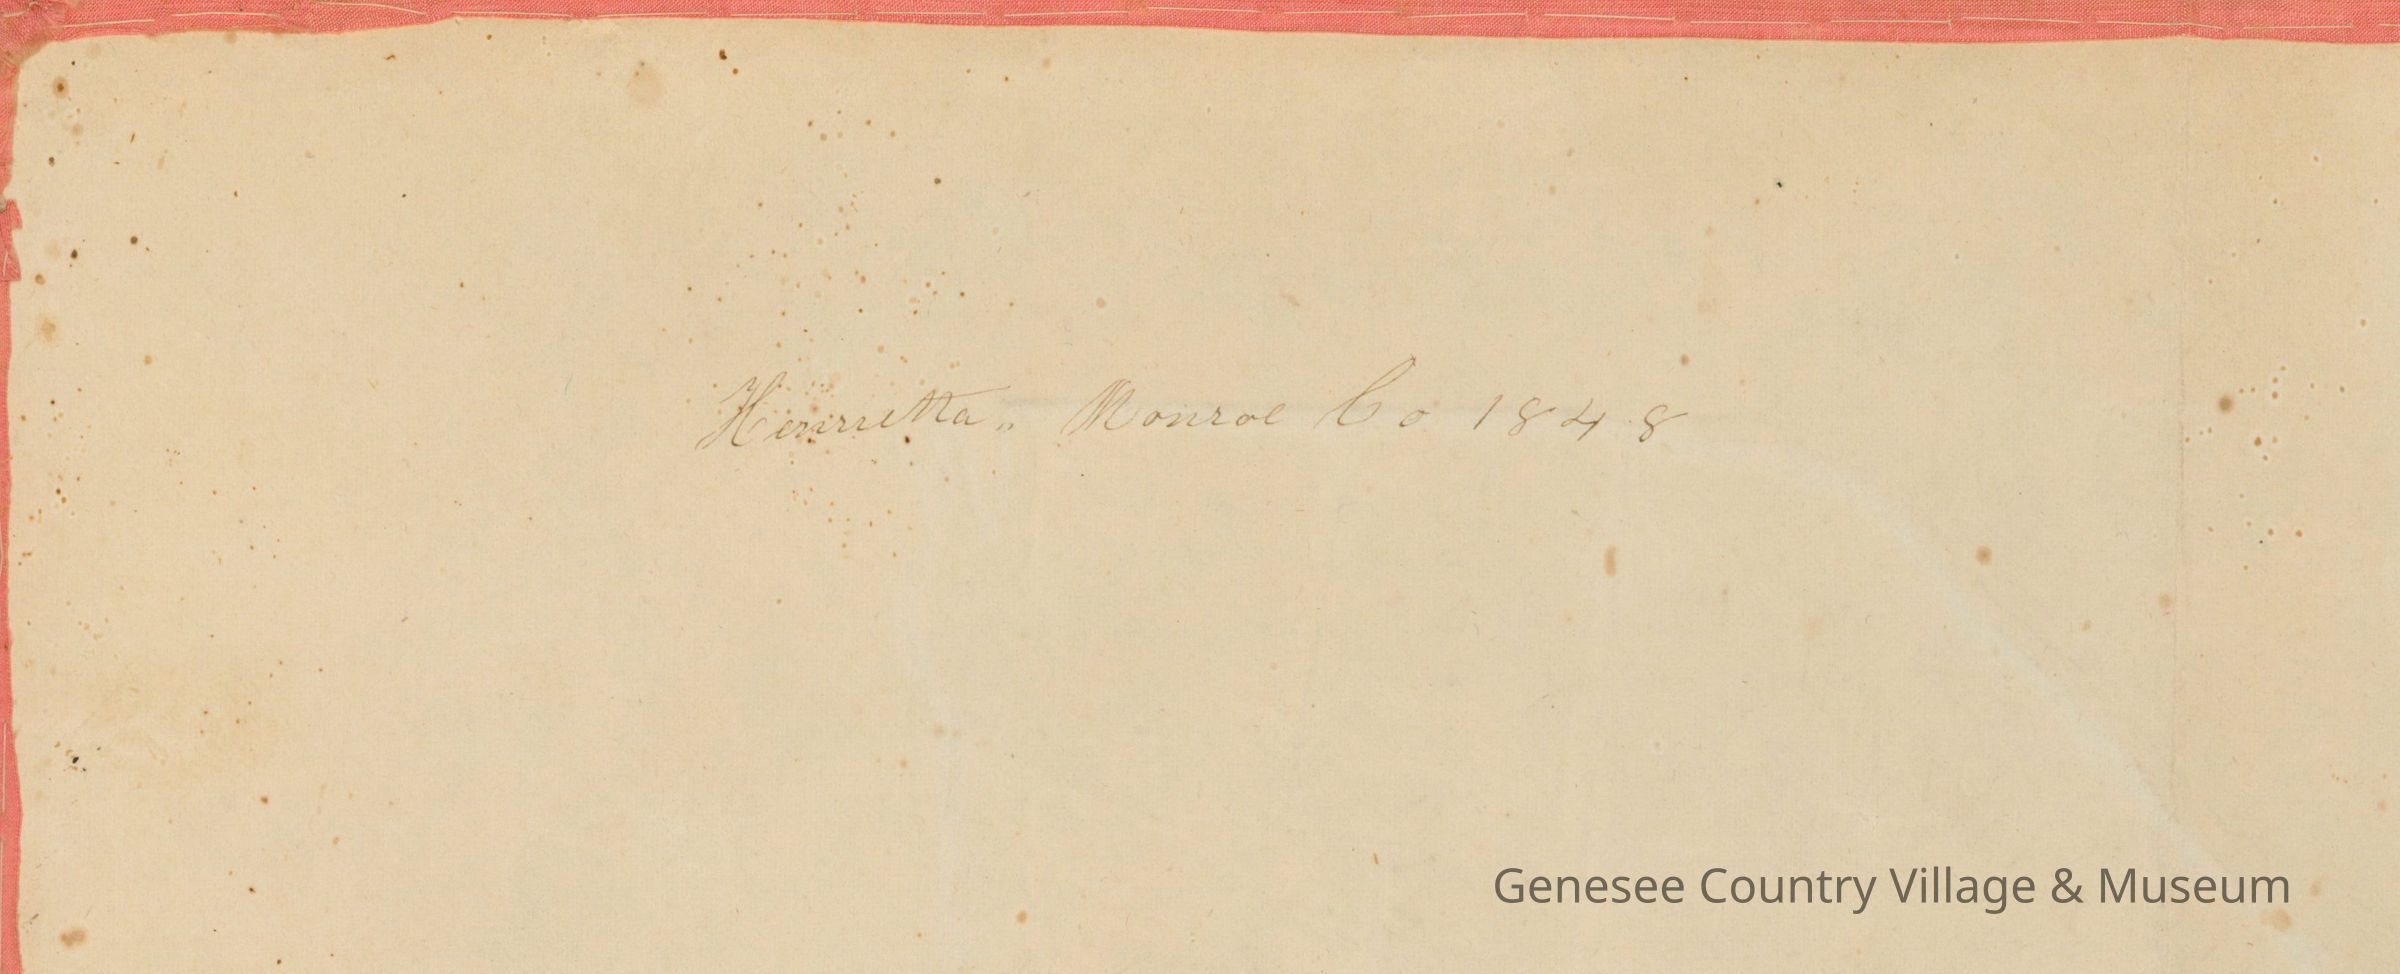 Henrietta,, Monroe Co 1848
Genesee Country Village & Museum